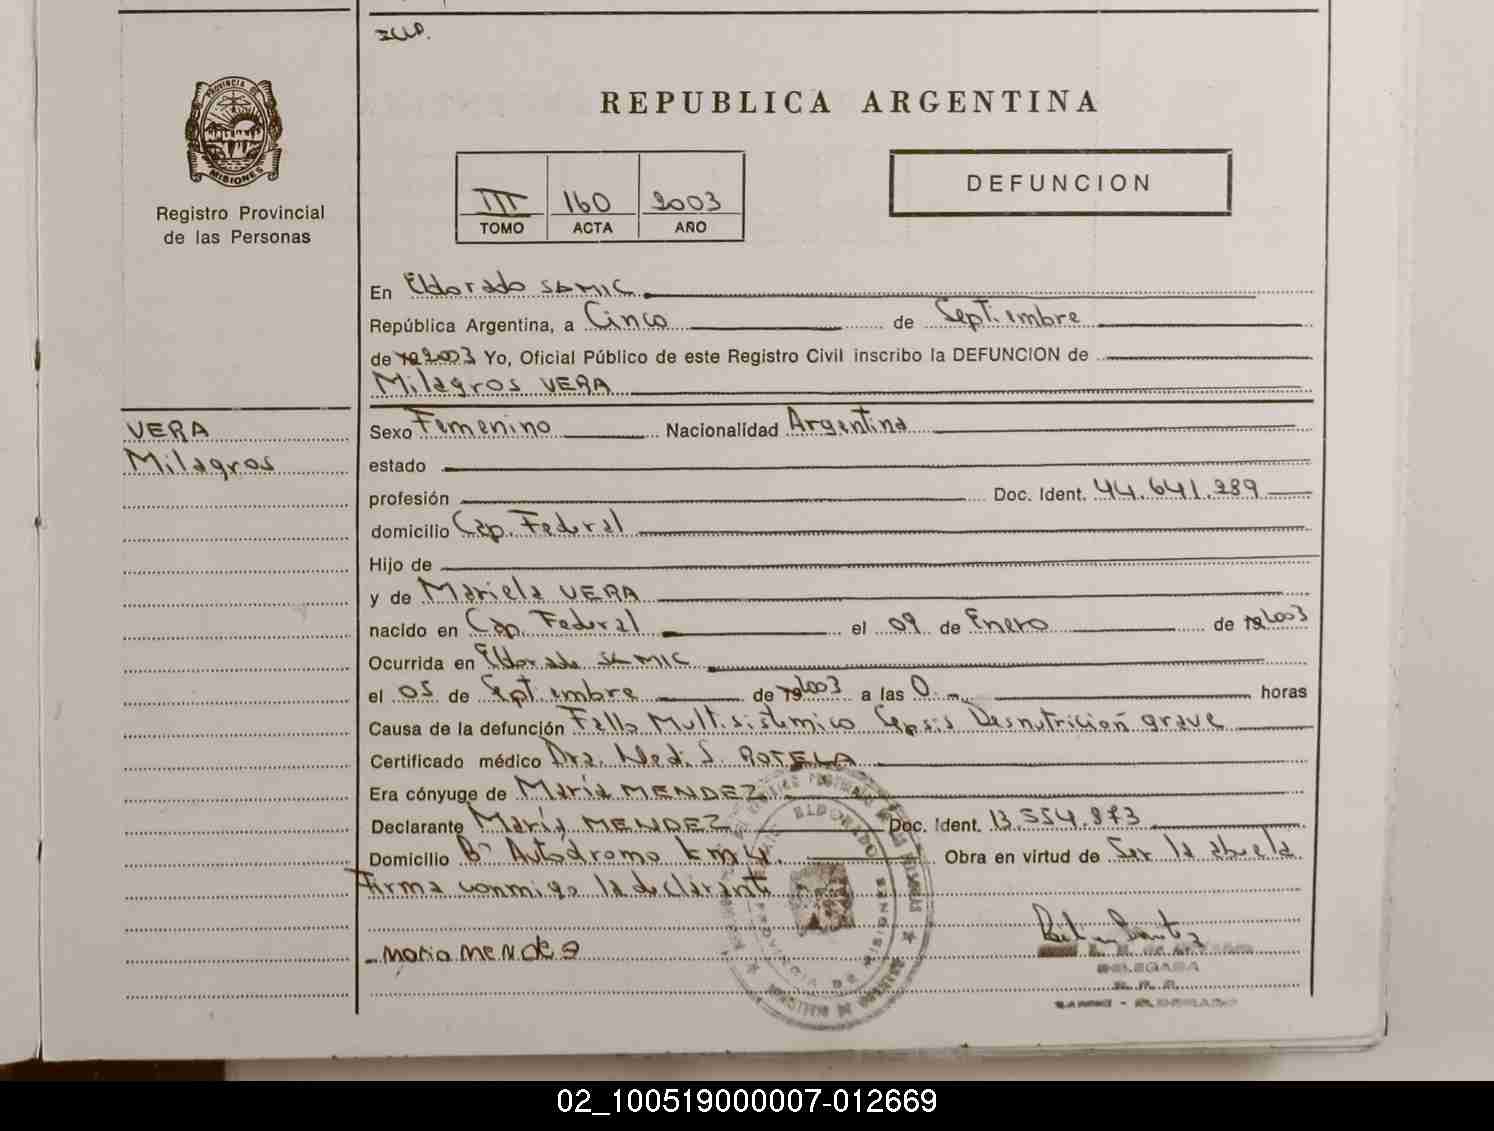 REPUBLICA ARGENTINA
PROVINCIA DE
MISIONES
Registro Provincial
de las Personas
III 160 2003
TOMO ACTA AÑO
DEFUNCION
En Eldorado SAMIC
República Argentina, a Cinco de Septiembre
de 19 2003 Yo, Oficial Público de este Registro Civil inscribo la DEFUNCION de
Milagros VERA
VERA
Milagros
Sexo Femenino Nacionalidad Argentina
estado
profesión Doc. Ident. 44.641.289
domicilio Cap. Federal
Hijo de
y de Mariela VERA
nacido en Cap. Federal el 09 de Enero de 19 2003
Ocurrida en Eldorado SAMIC
el 05 de Septiembre de 19 2003 a las 0.- horas
Causa de la defunción Fallo Multisistemico Sepsis Desnutrición grave
Certificado médico Dra. Med. S. ROTELA
Era cónyuge de María MENDEZ
Declarante María MENDEZ Doc. Ident. 13.554.873
Domicilio B° Autodromo km 4. Obra en virtud de Ser la abuela
Firma conmigo la declarante
ELDORADO
PROVINCIA DE MISIONES
DELEGADA
02_100519000007-012669